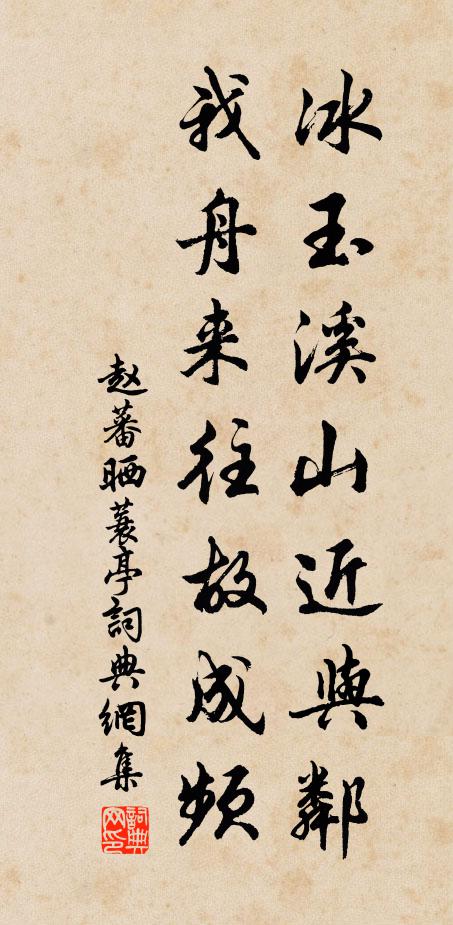 冰玉溪山近與鄰
我舟来往故成頻
赵蕃晒蓑亭詞典網集
詞典网印